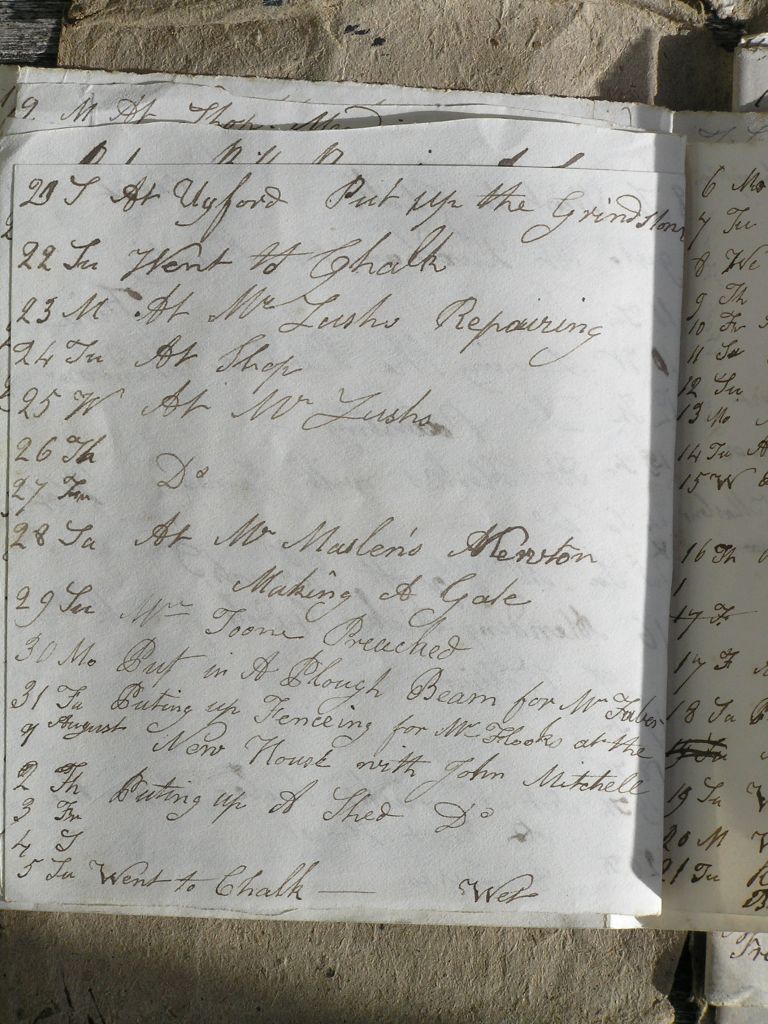 19. M At Shop
21 S At Ugford Put up the Grindstone
22 Su Went to Chalk
23 M At Mr Lushs Repairing
24 Tu At Shop
25 W At Mr Lushs
26 Th
27 Fr Do
28 Sa At Mr Maslen's Newton
Making A Gate
29 Su Mr Toone Preached
30 Mo Put in A Plough Beam for Mr
31 Tu Puting up Fenceing for Mr Flooks at the
August New House with John Mitchell
2 Th Puting up A Shed Do
3 Fr
4 S
5 Su Went to Chalk — Wet
6 Mo
7 Tu
8 We
9 Th
10 Fr
11 Sa
12 Su
13 Mo
14 Tu
15 W
16 Th
1
17 F
17 F
18 Sa
19 Su
20 M
21 Tu